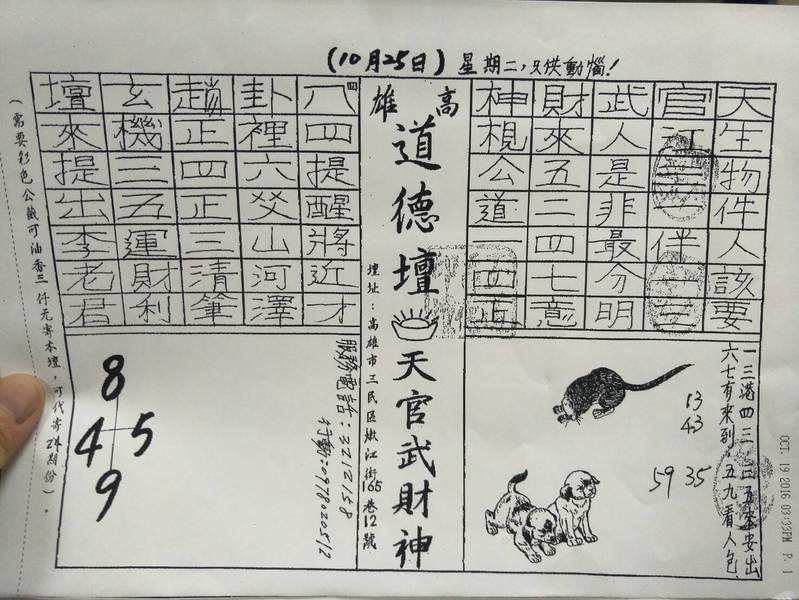 (10月25日) 星期二,只供動惱!
天生物件人該要
官江伴
武人是非最分明
財來五二四七意
神梘公道一四正
高雄
道德壇
天官武財神
壇址：高雄市三民區嫩江街165巷12號
四
八四提醒將近才
卦裡六爻山河澤
趙正四正三清筆
玄機三五運財利
壇來提出李老君
一三港四三二五來安出
六七有來到，五九看人包
13
43
59 35
服務電話：3212158
行動：0978020512
8
4 5
9
(需要彩色公籤可油香三仟元寄本壇，可代寄
OCT. 19 2016 03:33PM P. 1